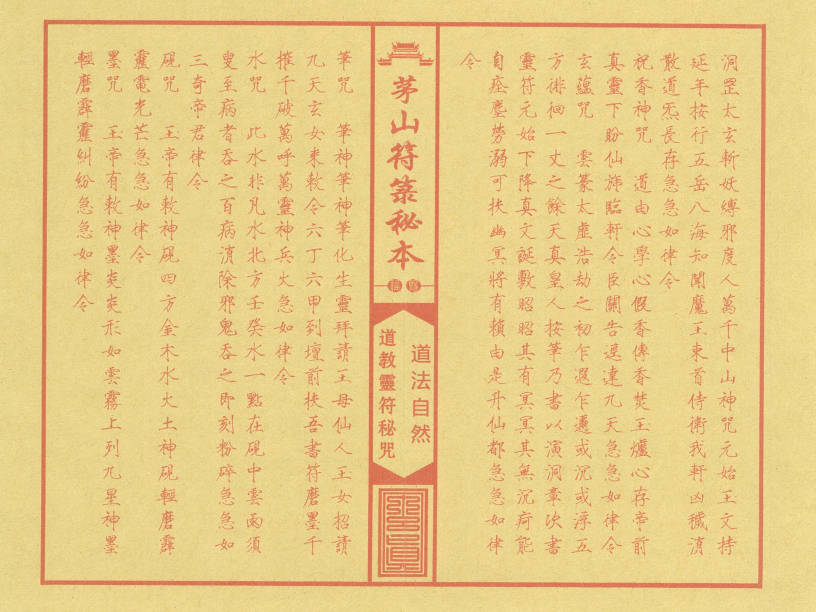 洞罡太玄斬妖縛邪度人萬千中山神咒元始玉文持
延年按行五岳八海知聞魔王束首侍衛我軒凶穢消
散道炁長存急急如律令
祝香神咒 道由心學心假香傳香焚玉爐心存帝前
真靈下盼仙旆臨軒令臣關告逕達九天急急如律令
玄蘊咒 雲篆太虛浩劫之初乍遐乍邇或沉或浮五
方徘徊一丈之餘天真皇人按筆乃書以演洞章次書
靈符元始下降真文誕敷昭昭其有冥冥其無沉疴能
自痊塵勞溺可扶幽冥將有賴由是升仙都急急如律
令
茅山符箓秘本
道法自然
道教靈符秘咒
筆咒 筆神筆神筆化生靈拜請王母仙人玉女招請
九天玄女来敕令六丁六甲到壇前扶吾書符磨墨千
摧千破萬呼萬靈神兵火急如律令
水咒 此水非凡水北方壬癸水一點在硯中雲雨須
叟至病者吞之百病消除邪鬼吞之即刻粉碎急急如
三奇帝君律令
硯咒 玉帝有敕神硯四方金木水火土神硯輕磨霹
靂電光芒急急如律令
墨咒 玉帝有敕神墨炎炎形如雲霧上列九星神墨
輕磨霹靂糾紛急急如律令